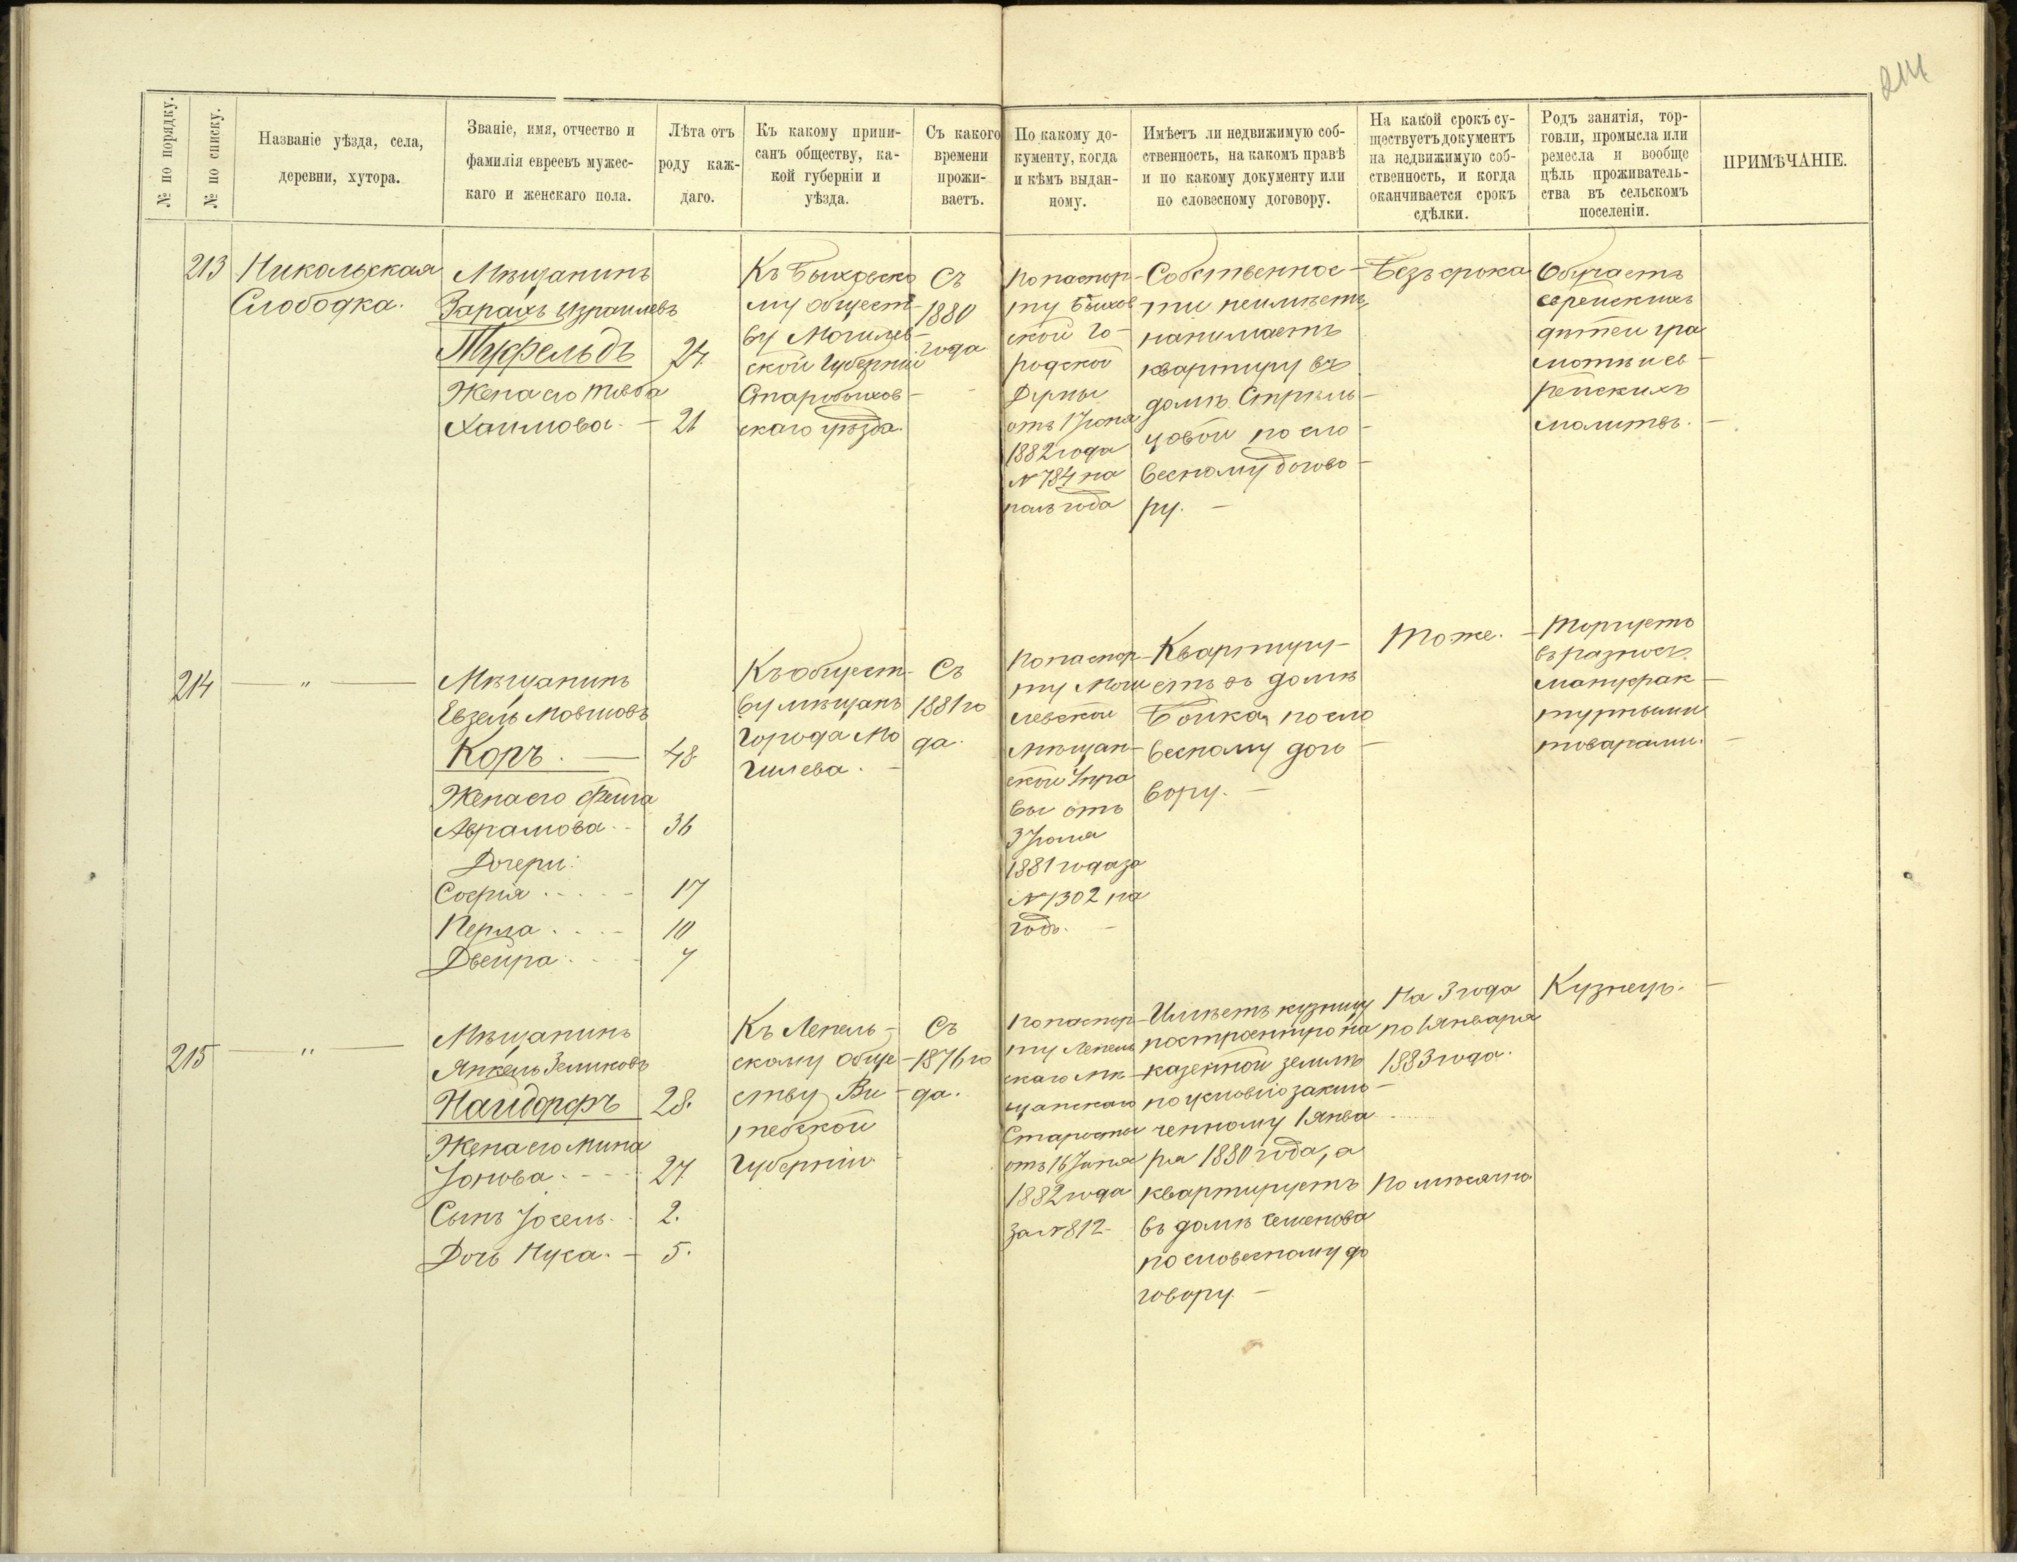 214
№ по порядку.
№ по списку.
Названіе уѣзда, села,
деревни, хутора.
Званіе, имя, отчество и
фамилія евреевъ мужес-
каго и женскаго пола.
Лѣта отъ
роду каж-
даго.
Къ какому припи-
санъ обществу, ка-
кой губерніи и
уѣзда.
Съ какого
времени
прожи-
ваетъ.
По какому до-
кументу, когда
и кѣмъ выдан-
ному.
Имѣетъ ли недвижимую соб-
ственность, на какомъ правѣ
и по какому документу или
по словесному договору.
На какой срокъ су-
ществуетъ документъ
на недвижимую соб-
ственность, и когда
оканчивается срокъ
сдѣлки.
Родъ занятія, тор-
говли, промысла или
ремесла и вообще
цѣль проживатель-
ства въ сельскомъ
поселеніи.
ПРИМѢЧАНІЕ.
213
Никольская
Слободка.
Мѣщанинъ
Зарахъ Израилевъ
Туфельдъ
24
Жена его
Хаимова. 21
Къ Быховско
му общест-
ву Могилев-
ской Губерніи
Старобыхов-
скаго уѣзда.
Съ
1880
года
По паспор-
ту Быхов
ской Го-
родской
Думы
отъ 1 Іюня
1882 года
№ 784 на
полъ года
Собственнос-
ти неимѣетъ,
нанимаетъ
квартиру въ
домѣ Стрѣль-
цовой по сло-
весному догово-
ру.
Безъ срока
Обучаетъ
еврейскихъ
дѣтей гра
мотѣ и ев-
рейскихъ
молитвъ.
214
"
Мѣщанинъ
Евзель Мовшовъ
Коръ. 48
Жена его Фейга
Аврамова 36
Дочери:
Софія 17
Перла 10
Двейра 7
Къ общест-
ву мѣщанъ
города Мо
гилева.
Съ
1881 го
да.
По паспор-
ту Моги
левской
Мѣщан-
ской Упра
вы отъ
3 Іюня
1881 года за
№ 1302 на
годъ.
Квартиру-
етъ въ домѣ
Бойка, по сло
весному дого-
вору.
Тоже.
Торгуетъ
въ разносъ
мануфак-
турными
товарами.
215
"
Мѣщанинъ
Янкель Зеликовъ
Найдорфъ 28.
Жена его Мина
Іонова 27
Сынъ Іосель 2.
Дочь Нуха. 5.
Къ Лепель-
скому обще-
ству Ви-
тебской
Губерніи.
Съ
1876 го
да.
По паспор-
ту Лепель
скаго мѣ-
щанскаго
Старосты
отъ 16 Іюня
1882 года
за № 812
Имѣетъ кузницу
построенную на
казенной землѣ
по условію заклю-
ченному 1 Янва
ря 1880 года, а
квартируетъ
въ домѣ Семенова
по словесному до
говору.
На 3 года
по 1 Января
1883 года.
Помѣсячно
Кузнецъ.